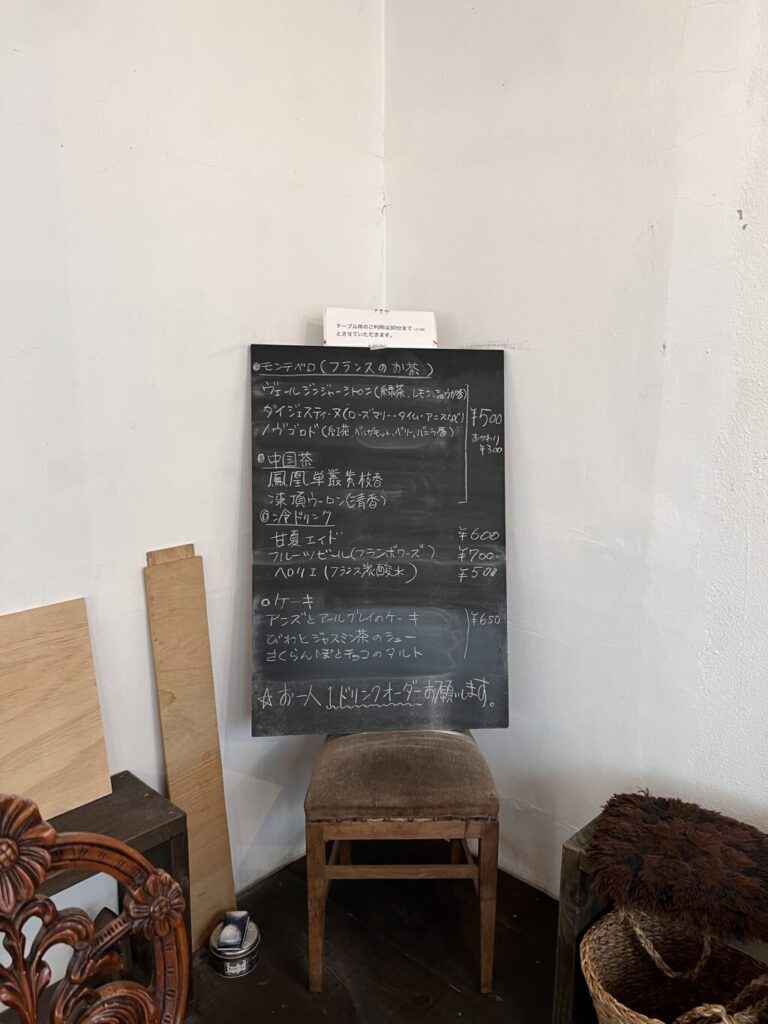 テーブル席のご利用は30分まで
とさせていただきます。
モンテベロ(フランスのお茶)
ヴェールジンジャーシトロン(緑茶、レモン、ショウガ香)
ダイジェスティーヌ(ローズマリー・タイム・アニスなど) ¥500
ノヴゴロド(紅茶 ベルガモット、ベリー、バニラ香) おかわり ¥300
中国茶
鳳凰単叢黄枝香
凍頂ウーロン(清香)
冷ドリンク
甘夏エイド ¥600
フルーツビール(フランボワーズ) ¥700
ペロリエ(フランス炭酸水) ¥500
ケーキ
アンズとアールグレイのケーキ ¥650
びわとジャスミン茶のシュー
さくらんぼとチョコのタルト
☆お一人1ドリンクオーダーお願いします。